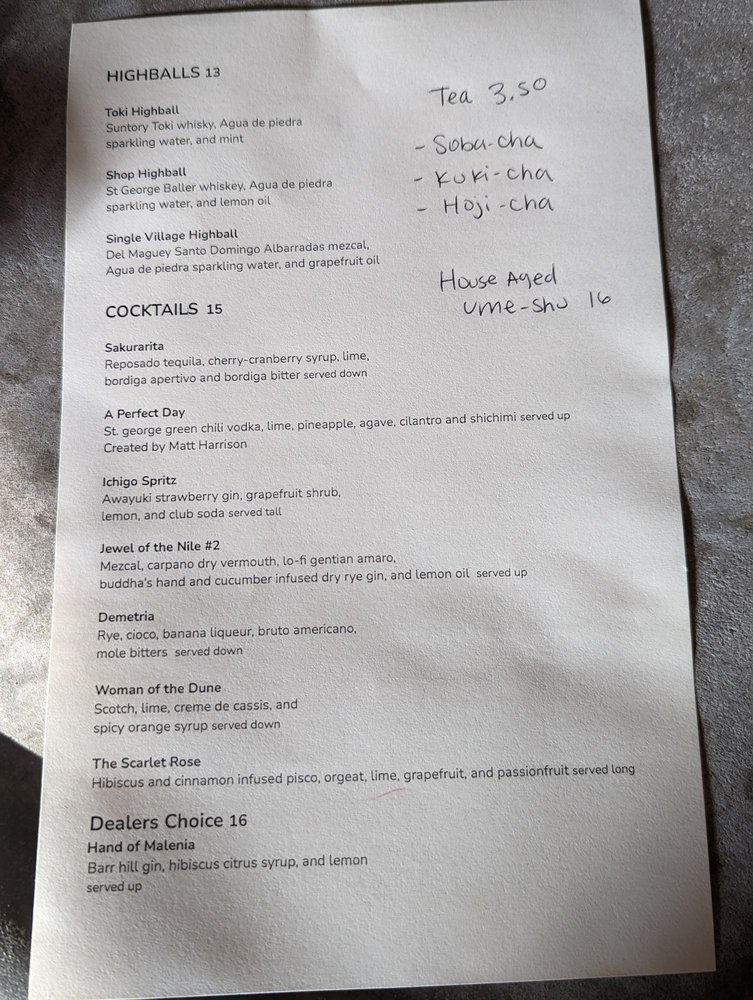 HIGHBALLS 13
Toki Highball
Suntory Toki whisky, Agua de piedra
sparkling water, and mint
Shop Highball
St George Baller whiskey, Agua de piedra
sparkling water, and lemon oil
Single Village Highball
Del Maguey Santo Domingo Albarradas mezcal,
Agua de piedra sparkling water, and grapefruit oil
Tea 3.50
- Soba-cha
- Kuki-cha
- Hoji-cha
House Aged
Ume-shu 16
COCKTAILS 15
Sakurarita
Reposado tequila, cherry-cranberry syrup, lime,
bordiga apertivo and bordiga bitter served down
A Perfect Day
St. george green chili vodka, lime, pineapple, agave, cilantro and shichimi served up
Created by Matt Harrison
Ichigo Spritz
Awayuki strawberry gin, grapefruit shrub,
lemon, and club soda served tall
Jewel of the Nile #2
Mezcal, carpano dry vermouth, lo-fi gentian amaro,
buddha's hand and cucumber infused dry rye gin, and lemon oil served up
Demetria
Rye, cioco, banana liqueur, bruto americano,
mole bitters served down
Woman of the Dune
Scotch, lime, creme de cassis, and
spicy orange syrup served down
The Scarlet Rose
Hibiscus and cinnamon infused pisco, orgeat, lime, grapefruit, and passionfruit served long
Dealers Choice 16
Hand of Malenia
Barr hill gin, hibiscus citrus syrup, and lemon
served up